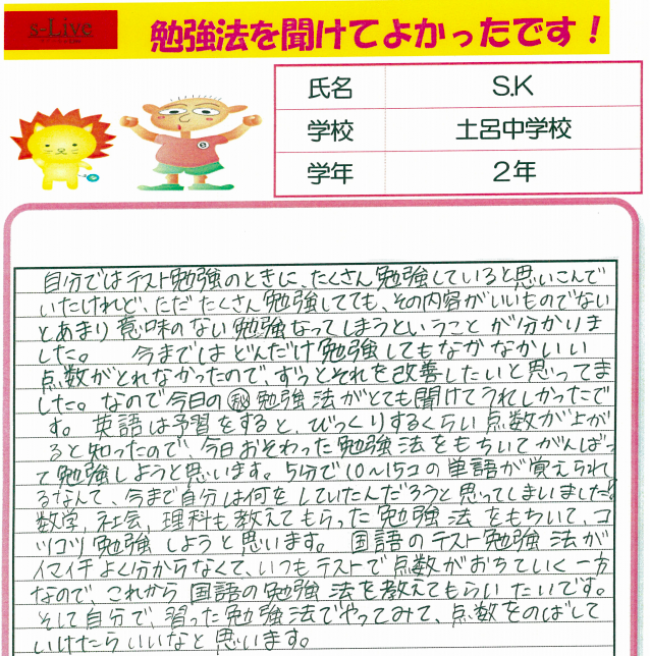 s-Live
勉強法を聞けてよかったです！
氏名 S.K
学校 土呂中学校
学年 2年
自分ではテスト勉強のときに、たくさん勉強していると思いこんで
いたけれど、ただたくさん勉強してても、その内容がいいものでない
とあまり意味のない勉強なってしまうということが分かりま
した。 今まではどんだけ勉強してもなかなかいい
点数がとれなかったので、ずっとそれを改善したいと思ってま
した。なので今日の㊙勉強法がとても聞けてうれしかったで
す。英語は予習をすると、びっくりするくらい点数が上が
ると知ったので、今日おそわった勉強法をもちいてがんばっ
て勉強しようと思います。5分で10～15コの単語が覚えられ
るなんて、今まで自分は何をしていたんだろうと思ってしまいました。
数学、社会、理科も教えてもらった勉強法をもちいて、コ
ツコツ勉強しようと思います。国語のテスト勉強法が
イマイチよく分からなくて、いつもテストで点数がおちていく一方
なので、これから国語の勉強法を教えてもらいたいです。
そして自分で、習った勉強法でやってみて、点数をのばして
いけたらいいなと思います。